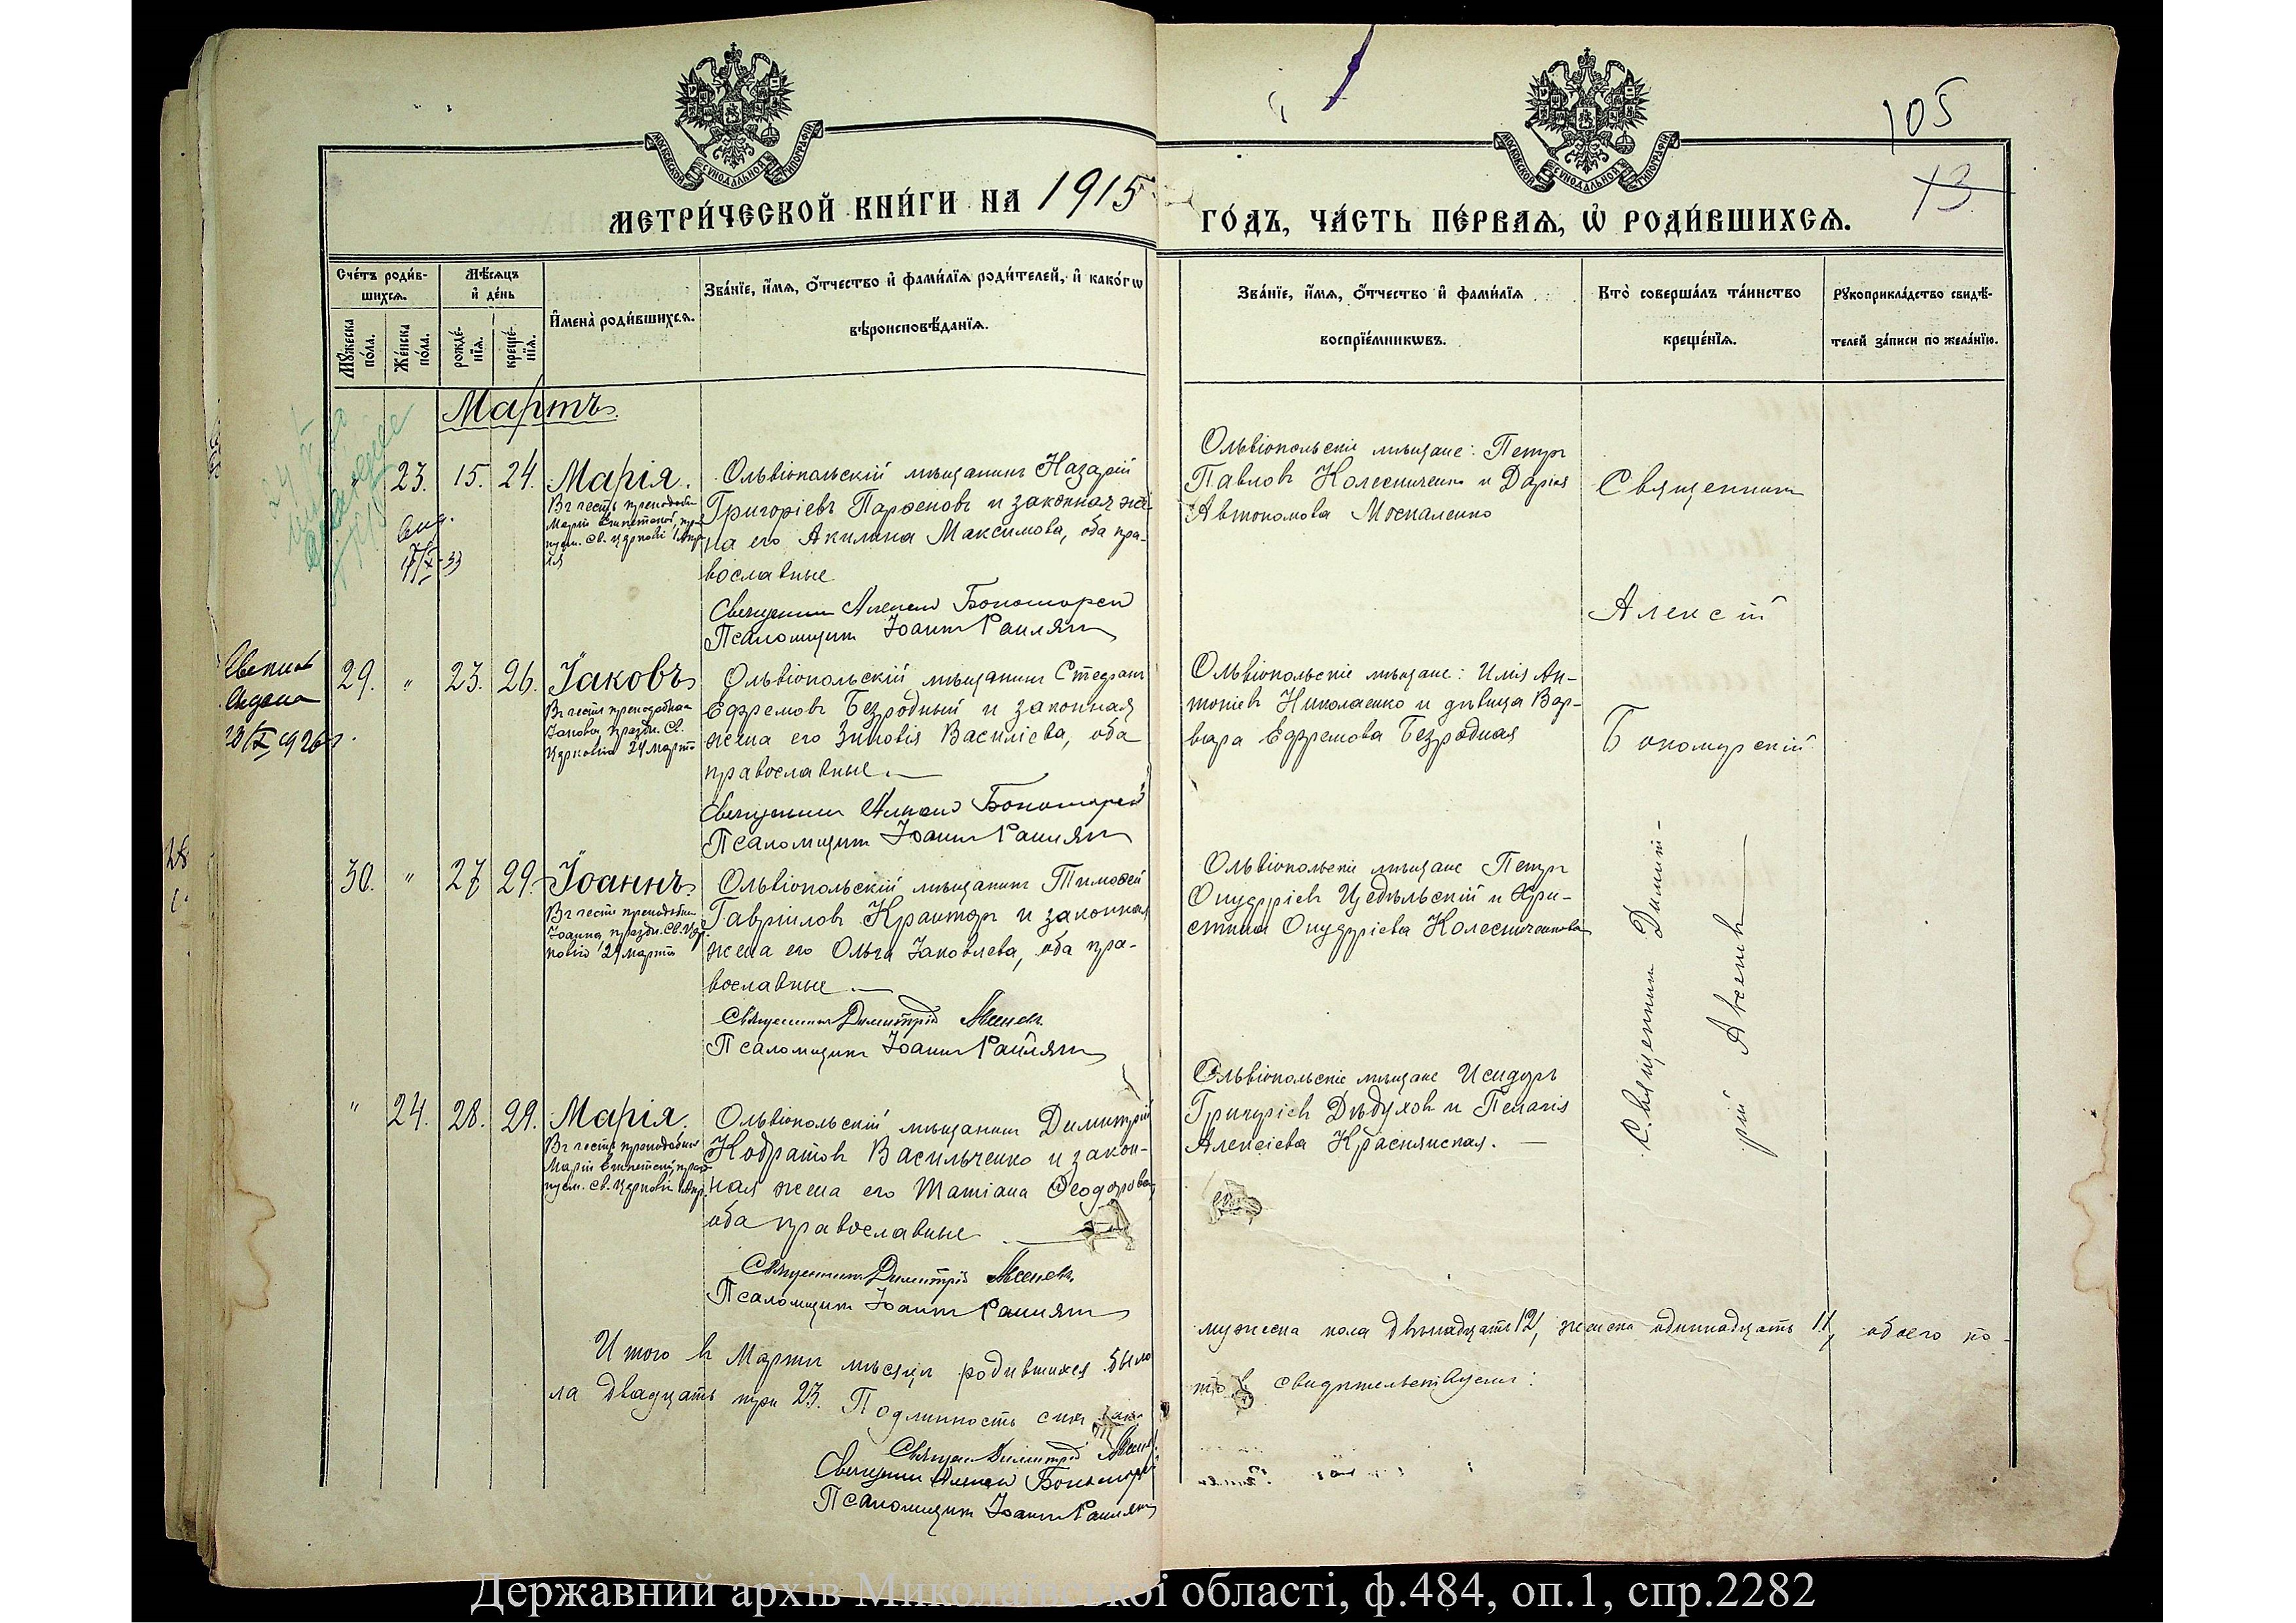 105
13
МОСКОВСКОЙ СѴНОДАЛЬНОЙ ТИПОГРАФІИ
МОСКОВСКОЙ СѴНОДАЛЬНОЙ ТИПОГРАФІИ
МЕТРИ́ЧЕСКОЙ КНИ́ГИ НА 1915
ГО́ДЪ, ЧА́СТЬ ПЕ́РВАѦ, Ѡ҆ РОДИ́ВШИХСѦ.
Сче́тъ роди́в-
шихсѧ.
Мꙋ́жеска по́ла.
Же́нска по́ла.
Мѣ́сѧцъ
и҆ де́нь
рожде́-
нїѧ.
креще́-
нїѧ.
И҆мена̀ роди́вшихсѧ.
Зва́нїе, и҆́мѧ, ѻ҆́тчество и҆ фами́лїѧ роди́телей, и҆ како́гѡ
вѣроисповѣ́данїѧ.
Зва́нїе, и҆́мѧ, ѻ҆́тчество и҆ фами́лїѧ
воспрїе́мникѡвъ.
Кто̀ соверша́лъ та́инство
креще́нїѧ.
Рꙋкоприкла́дство свидѣ́-
телей за́писи по жела́нїю.
Мартъ.
" 23. 15. 24. Марія.
Въ честь преподобн.
Маріи Египетской, праздн.
св. Церковію 1 Апр
ля
Ольвіопольскій мѣщанинъ Назарій
Григоріевъ Парѳеновъ и законная же
на его Акилина Максимова, оба пра-
вославные
Священникъ Алексій Бокоморскій
Псаломщикъ Іоаннъ Раилянъ
Ольвіопольскіе мѣщане: Петръ
Павловъ Колесниченко и Дарія
Автономова Москаленко
Священникъ
Алексій
Бокоморскій
29. " 23. 26. Іаковъ
Въ честь преподобнаго
Іакова, праздн. Св.
Церковію 24 марта
Ольвіопольскій мѣщанинъ Стефанъ
Ефремовъ Безродный и законная
жена его Зиновія Василіева, оба
православные.
Священникъ Алексій Бокоморскій
Псаломщикъ Іоаннъ Раилянъ
Ольвіопольскіе мѣщане: Илія Ан-
тоніевъ Николаенко и дѣвица Вар-
вара Ефремова Безродная
20/X 1926 г.
30. " 27 29. Іоаннъ
Въ честь преподобн.
Іоанна, праздн. Св. Цер-
ковію 29 марта
Ольвіопольскій мѣщанинъ Тимоѳей
Гавріиловъ Крантор и законная
жена его Ольга Іаковлева, оба пра-
вославные
Священникъ Димитрій
Псаломщикъ Іоаннъ Раилянъ
Ольвіопольскіе мѣщане Петръ
Онуфріевъ Цедѣльскій и Хри-
стина Онуфріева Колесниченкова
Священникъ Димит-
рій Авсеневъ
" 24. 28. 29. Марія.
Въ честь преподобныя
Маріи Египетской, праздн.
св. Церковію 1 Апр.
Ольвіопольскій мѣщанинъ Димитрій
Кодратовъ Васильченко и закон-
ная жена его Татіана Ѳеодорова,
оба православные
Священникъ Димитрій
Псаломщикъ Іоаннъ Раилянъ
Ольвіопольскіе мѣщане Исидоръ
Григоріевъ Дѣдуховъ и Пелагія
Алексіева Краснянская.
Итого въ Мартѣ мѣсяцѣ родившихся было
мужеска пола двѣнадцать 12, женска одиннадцать 11, обоего по-
ла двадцать три 23. Подлинность сихъ
свидѣтельствуемъ:
Священ. Димитрій
Священникъ Алексій Бокоморскій
Псаломщикъ Іоаннъ Раилянъ
Державний архів Миколаївської області, ф.484, оп.1, спр.2282